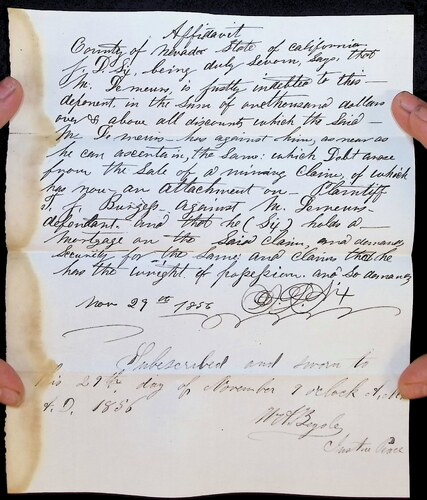 Affidavit
County of Nevada State of California
J. D. Six, being duly sworn, says, that
M. Temeuns, is justly indebted to this
deponent in the sum of one thousand dollars
over & above all discounts which the said
M. Temeuns has against him, as near as
he can ascertain, the same: which Debt arose
from the Sale of a mining Claim, of which
has you an attachment on Plaintiff
J. Burgess against M. Temeuns
defendant. and that he (Six) holds a
mortgage on the Said Claim, and demands
security for the same; and claims that he
has the wright of possession. and so demands
Nov 29th 1856 J. D. Six
Subscribed and sworn to
this 29th day of November 9 oclock A. M.
A. D. 1856
Justice Peace